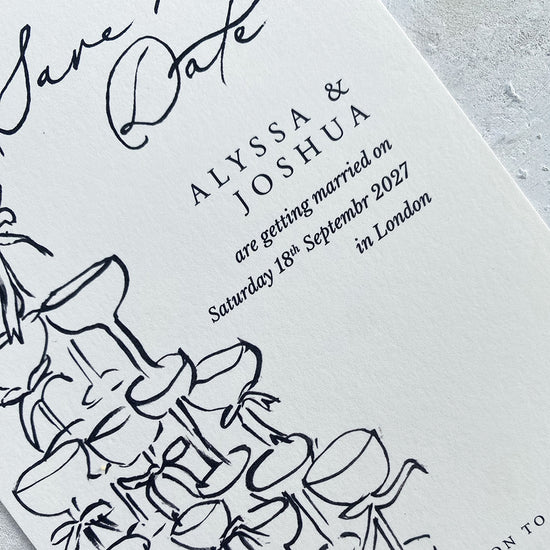 Save
Date
ALYSSA &
JOSHUA
are getting married on
Saturday 18th Septembr 2027
in London
ON TO